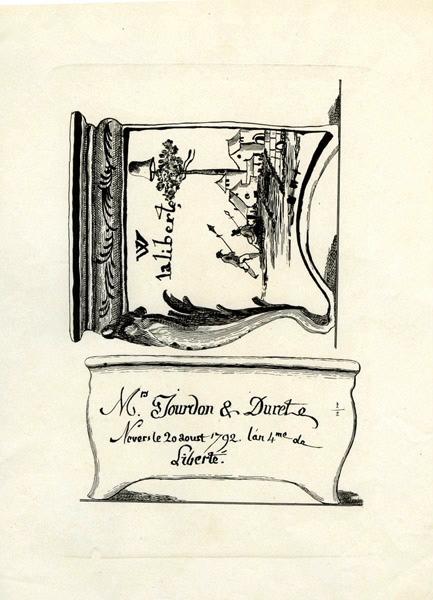 W
la liberté
M.rs Jourdon & Durete
Nevers le 20 aoust 1792. l'an 4.me de
Liberté.
1/2